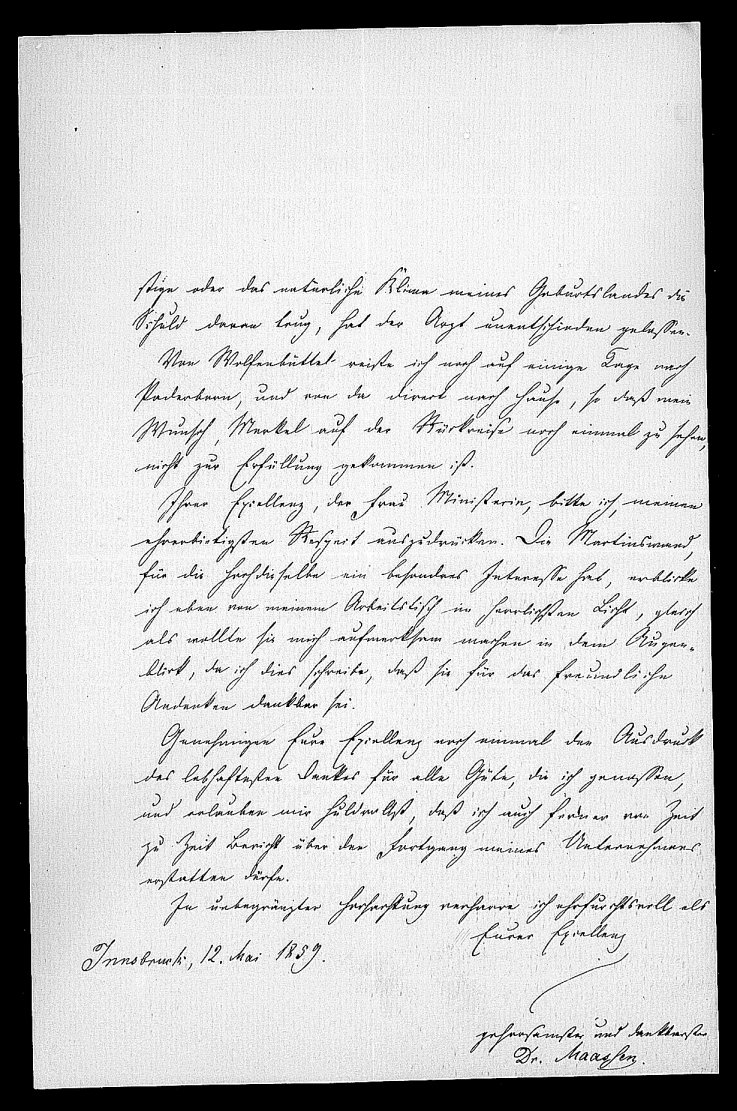 stige oder das natürliche Klima meines Geburtslandes die
Schuld davon trug, hat der Arzt unentschieden gelassen.
Von Wolfenbüttel reiste ich noch auf einige Tage nach
Paderborn, und von da direct nach Hause, so daß mein
Wunsch, Merkel auf der Rückreise noch einmal zu sehen,
nicht zur Erfüllung gekommen ist.
Ihrer Excellenz, der Frau Ministerin, bitte ich, meinen
ehrerbietigsten Respect auszudrücken. Die Martinswand,
für die Hochdieselbe ein besonderes Interesse hat, erblicke
ich eben von meinem Arbeitstisch im herrlichsten Licht, gleich
als wollte sie mich aufmerksam machen in dem Augen-
blick, da ich dies schreibe, daß sie für das freundliche
Andenken dankbar sei.
Genehmigen Eure Excellenz noch einmal den Ausdruck
des lebhaftesten Dankes für alle Güte, die ich genossen,
und erlauben mir huldvollst, daß ich auch ferner von Zeit
zu Zeit Bericht über den Fortgang meines Unternehmens
erstatten dürfe.
In unbegränzter Hochachtung verharre ich ehrfurchtsvoll als
Eurer Excellenz
Innsbruck, 12. Mai 1859.
gehorsamster und dankbarster
Dr. Maassen.